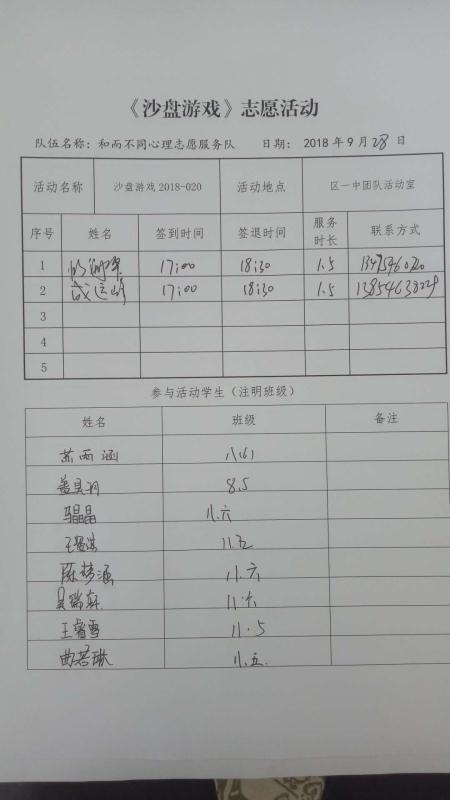 《沙盘游戏》志愿活动
队伍名称：和而不同心理志愿服务队 日期： 2018 年 9 月 28 日
活动名称 沙盘游戏 2018-020 活动地点 区一中团队活动室
序号 姓名 签到时间 签退时间 服务时长 联系方式
1 17:00 18:30 1.5
2 17:00 18:30 1.5
3
4
5
参与活动学生（注明班级）
姓名 班级 备注
苏西涵
8.5
晶晶 八.六
王 八.五
陈梦涵 八.六
吴瑞轩 八.六
王睿雪 八.5
曲若琳 八.五.